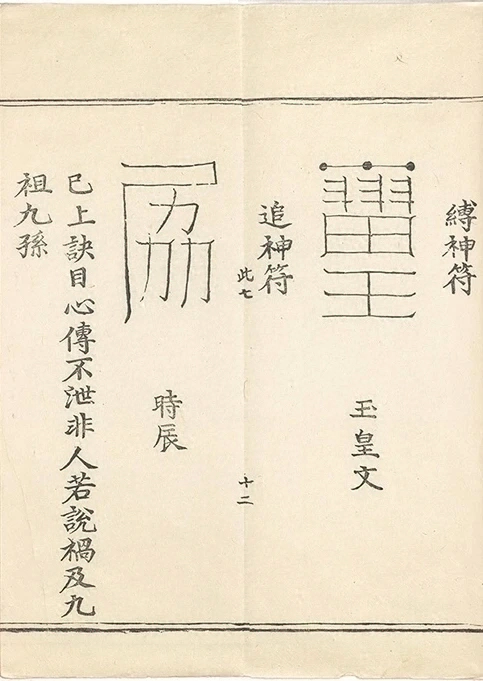 縛神符
玉皇文
追神符
此七
十二
時辰
已上訣目心傳不泄非人若說禍及九
祖九孫